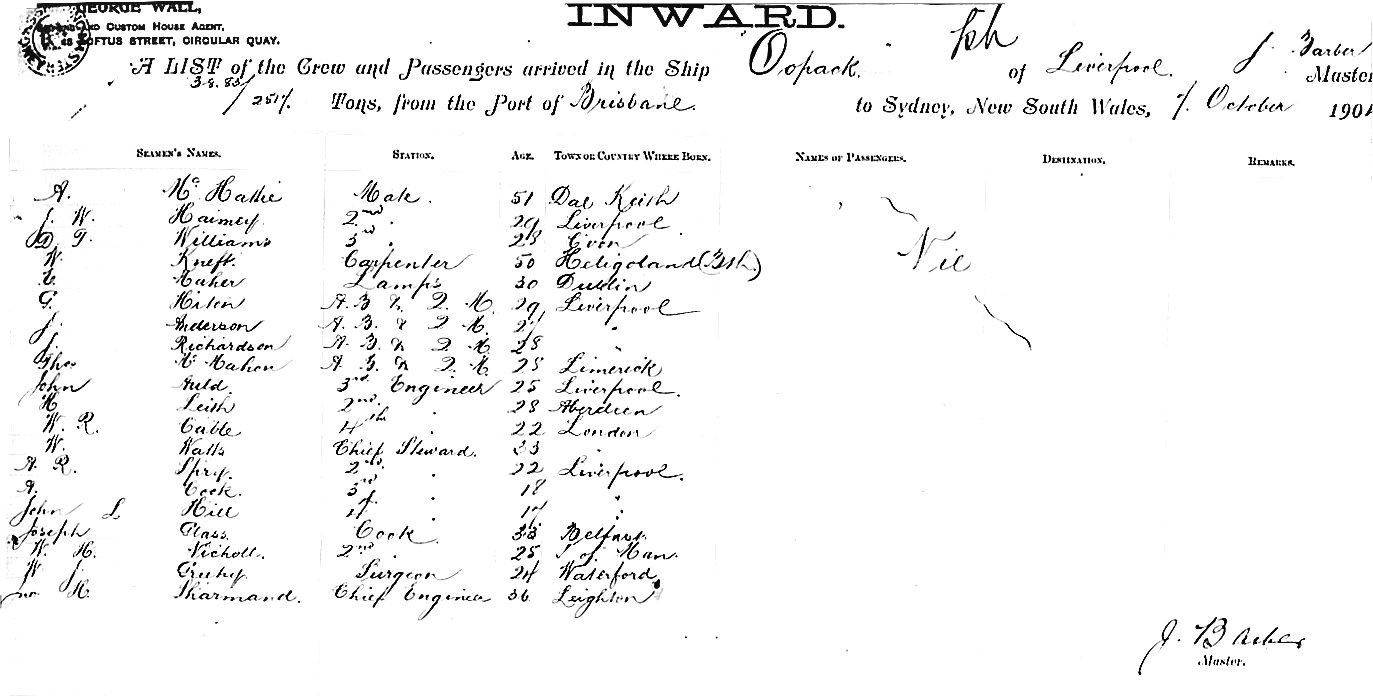 GEORGE WALL,
CUSTOM HOUSE AGENT,
LOFTUS STREET, CIRCULAR QUAY.
INWARD.
A LIST of the Crew and Passengers arrived in the Ship Oopack. of Liverpool. J Barber Master
2517. Tons, from the Port of Brisbane. to Sydney, New South Wales, 7. October 190
SEAMEN'S NAMES. STATION. AGE. TOWN OR COUNTRY WHERE BORN. NAMES OF PASSENGERS. DESTINATION. REMARKS.
A. Mc Hattie Mate. 51 Dal Keith
J. W. Haimey. 2nd " 29 Liverpool
D. T. Williams 3rd " 23
W. Kneft. Carpenter 50 Heligoland (Bsh.) Nil
Maher Lamps 30 Dublin
G. Hilton A. B & Q. M. 29 Liverpool
J. Anderson A. B. & Q. M. 27 "
J. Richardson A. B & Q M. 28 "
Thos Mc Mahon A B & Q M 25 Limerick
John Auld. 3rd Engineer 25 Liverpool.
H Leish 2nd " 28 Aberdeen
W. R. Cable 4th " 22 London
W. Watts Chief Steward. 33 "
A. R. Spry. 2nd " 22 Liverpool.
A. Cook. 3rd " 18 "
John L Hill 4 " 17 "
Joseph Glass. Cook. 33 Belfast.
W. H. Nicholl. 2nd " 25 I of Man.
W J. Surgeon 24 Waterford
Jno H. Sharmand. Chief Engineer 36 Leighton
J. Barber
Master.